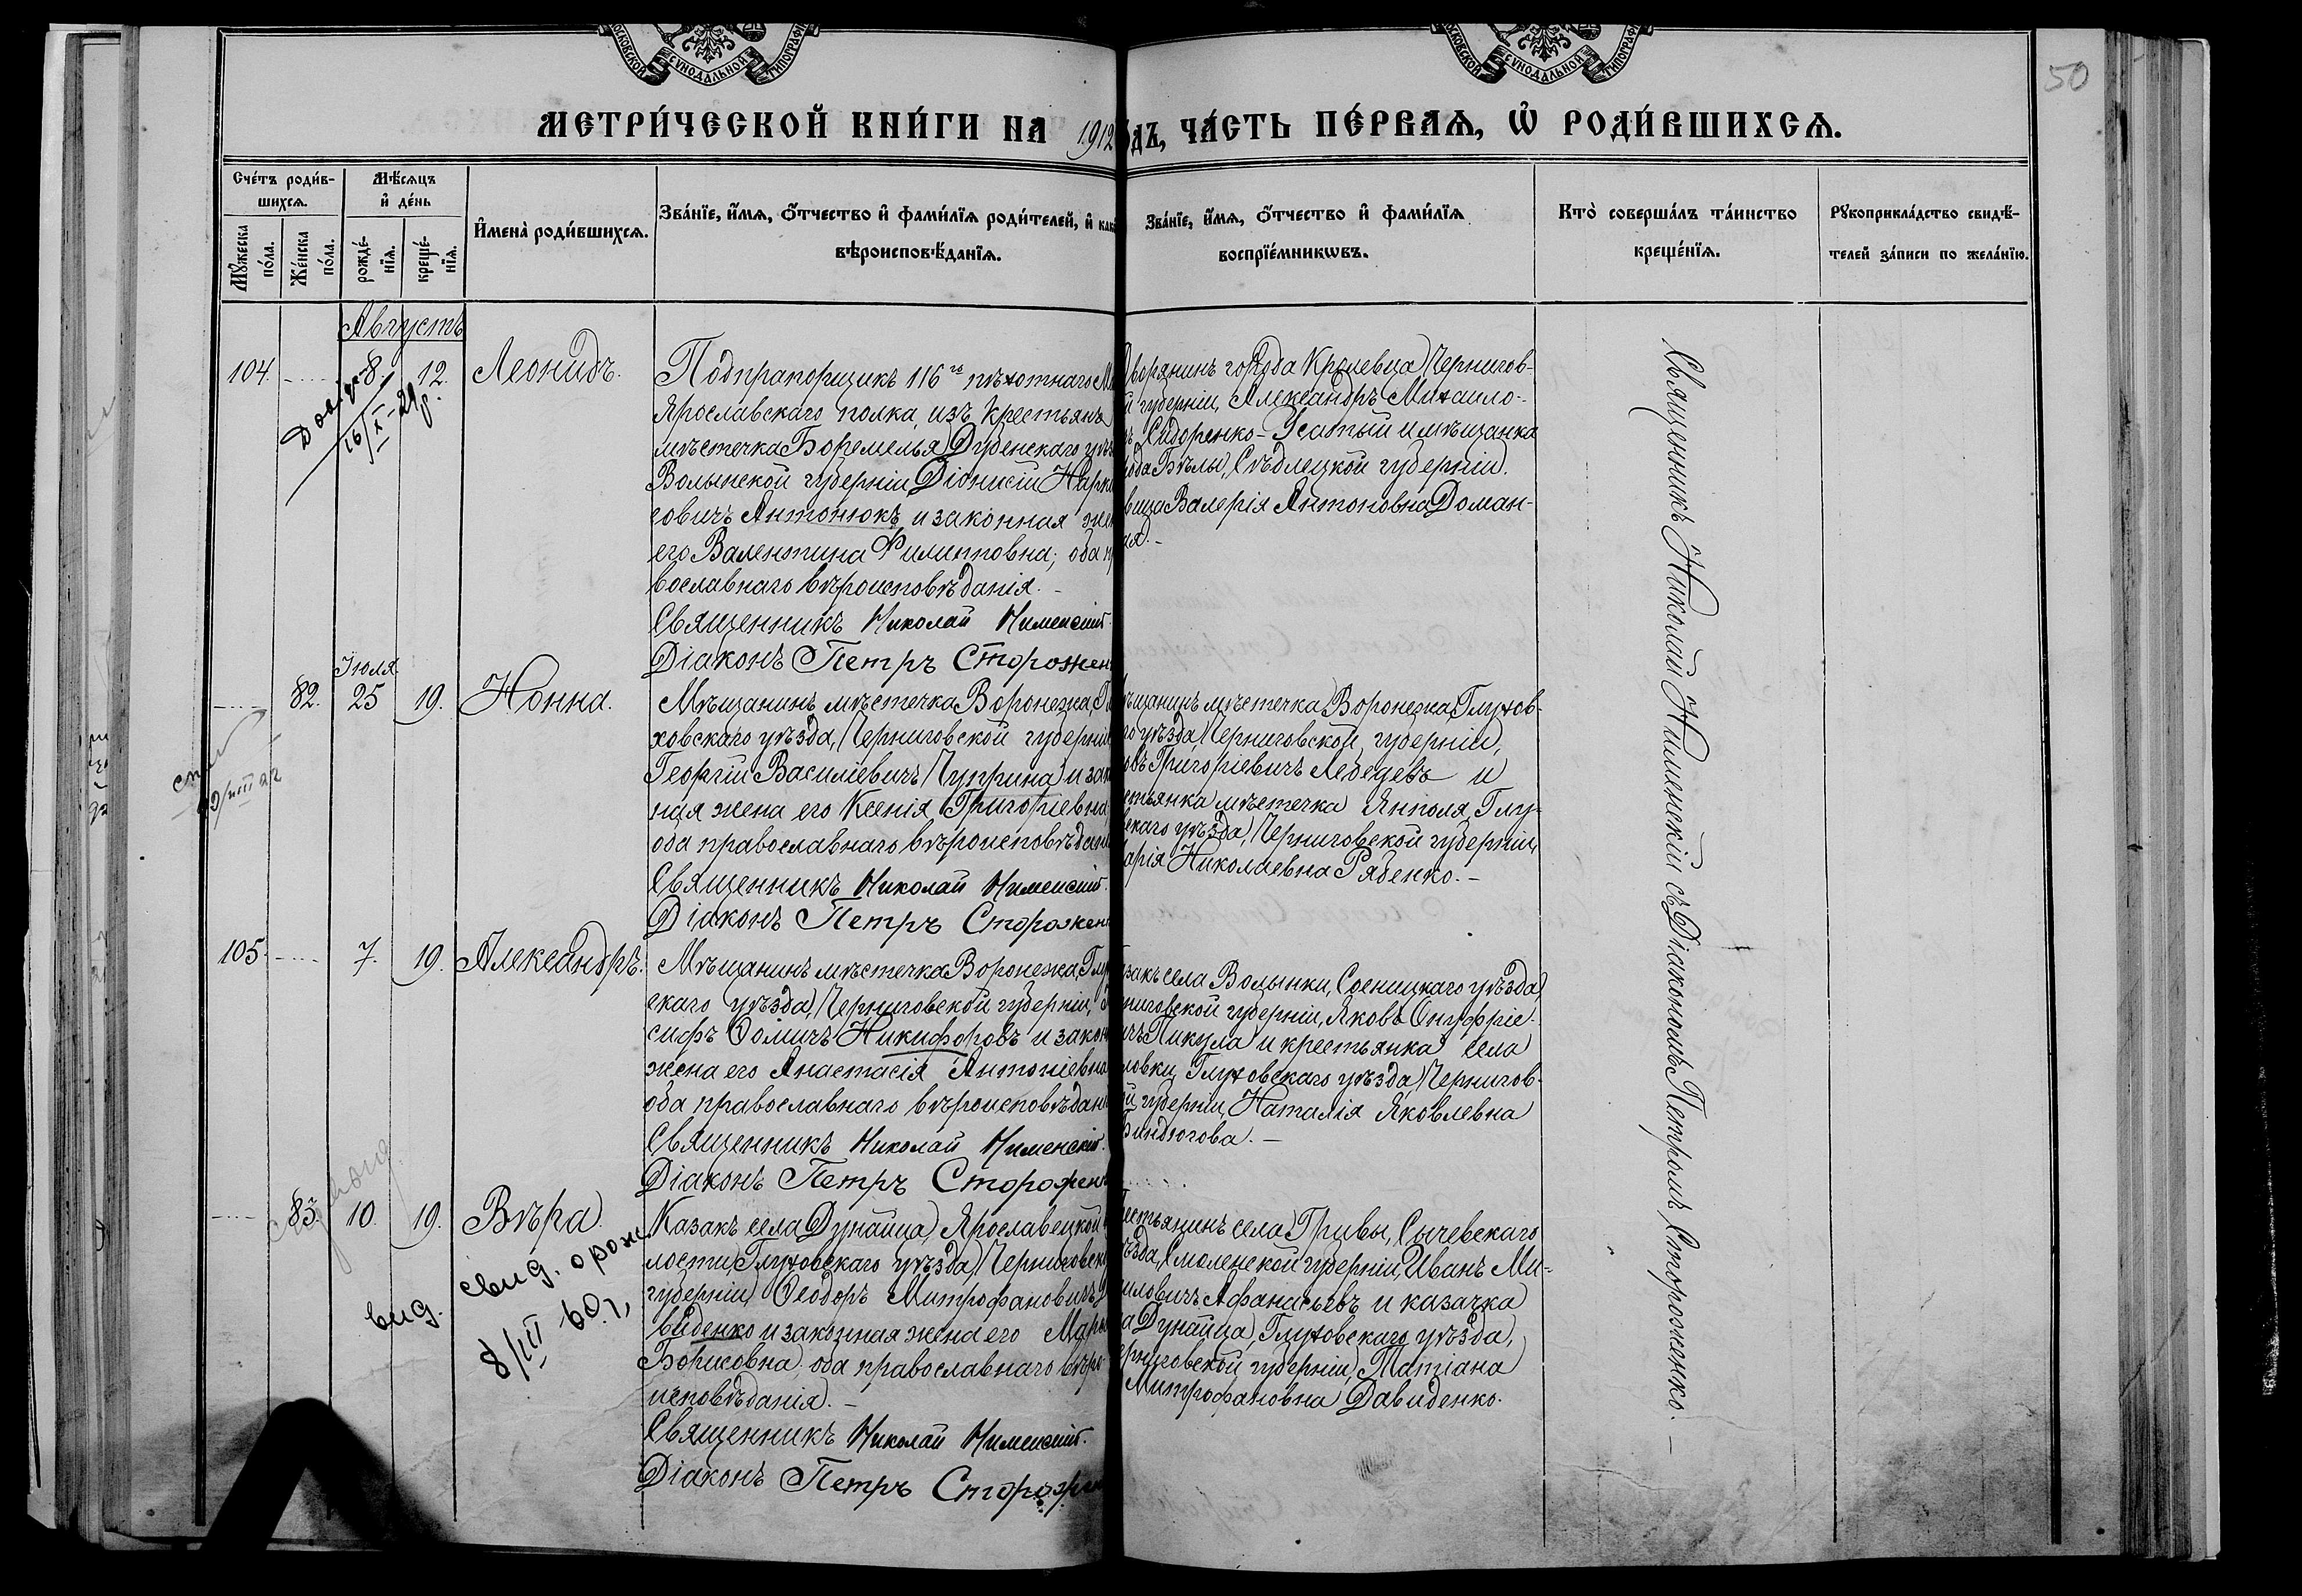 МОСКОВСКОЙ СѴНОДАЛЬНОЙ ТИПОГРАФ
МОСКОВСКОЙ СѴНОДАЛЬНОЙ ТИПОГРАФ
50
МЕТРИ́ЧЕСКОЙ КНИ́ГИ НА 1912 ДЪ, ЧА́СТЬ ПЕ́РВАѦ, Ѡ҆ РОДИ́ВШИХСѦ.
Сче́тъ роди́в-
шихсѧ.
Мꙋ́жеска по́ла.
Же́нска по́ла.
Мѣ́сѧцъ
и҆ де́нь
рожде́-
нїѧ.
креще́-
нїѧ.
И҆мена̀ роди́вшихсѧ.
Зва́нїе, и҆́мѧ, ѻ҆́тчество и҆ фами́лїѧ роди́телей, и҆ как
вѣроисповѣ́данїѧ.
Зва́нїе, и҆́мѧ, ѻ҆́тчество и҆ фами́лїѧ
воспрїе́мникѡвъ.
Кто̀ соверша́лъ та́инство
креще́нїѧ.
Рꙋкоприкла́дство свидѣ́-
телей за́писи по жела́нїю.
Августъ
104. 8. 12. Леонидъ.
16/X-29 р.
Подпрапорщикъ 116го пѣхотнаго Ма
Ярославскаго полка, изъ крестьянъ
мѣстечка Боремелья, Дубенскаго уѣз
Волынской губерніи, Діонисій Нарки
совичъ Антонюкъ и законная жен
его Валентина Филипповна; оба пр
вославнаго вѣроисповѣданія.–
Священникъ Николай Нименскій.
Діаконъ Петръ Сторожен
Дворянинъ города Кролевца, Чернигов-
й губерніи, Александръ Михаило-
ъ Сидоренко-Усатый и мѣщанка
ода Бѣлы, Сѣдлецкой губерніи,
вица Валерія Антоновна Доман-
ая.–
Іюля
82. 25 19. Нонна.
Мѣщанинъ мѣстечка Воронежа, Гл
ховскаго уѣзда, Черниговской губерніи
Георгій Василіевичъ Чуприна и зак
ная жена его Ксенія Григоріевна
оба православнаго вѣроисповѣдані
Священникъ Николай Нименскій.
Діаконъ Петръ Сторожен
ѣщанинъ мѣстечка Воронежа, Глухов-
го уѣзда, Черниговской губерніи,
овъ Григоріевичъ Лебедевъ и
стьянка мѣстечка Янполя, Глу-
скаго уѣзда, Черниговской губерніи,
арія Николаевна Рябенко.–
105. 7. 19. Александръ.
Мѣщанинъ мѣстечка Воронежа, Глу
скаго уѣзда, Черниговской губерніи, І
сифъ Ѳомичъ Никифоровъ и закон
жена его Анастасія Антоніевна
оба православнаго вѣроисповѣдан
Священникъ Николай Нименскій.
Діаконъ Петръ Сторожен
закъ села Волынки, Сосницкаго уѣзда,
ниговской губерніи, Яковъ Онуфріе-
чъ Пикула и крестьянка села
ловки, Глуховскаго уѣзда, Чернигов-
й губерніи, Наталія Яковлевна
индюгова.–
83. 10. 19. Вѣра.
вид. свид. о рож
8/III-60 г.,
Казакъ села Дунайца, Ярославецкой в
лости, Глуховскаго уѣзда, Черниговск
губерніи, Ѳеодоръ Митрофановичъ Д
виденко и законная жена его Марі
Борисовна; оба православнаго вѣро
исповѣданія.–
Священникъ Николай Нименскій.
Діаконъ Петръ Сторожен
естьянинъ села Гривы, Сычевскаго
ѣзда, Смоленской губерніи, Иванъ Ми-
иловичъ Афанасьевъ и казачка
а Дунайца, Глуховскаго уѣзда,
ерниговской губерніи, Татіана
Митрофановна Давиденко.
Священникъ Николай Нименскій съ Діакономъ Петромъ Стороженко.–